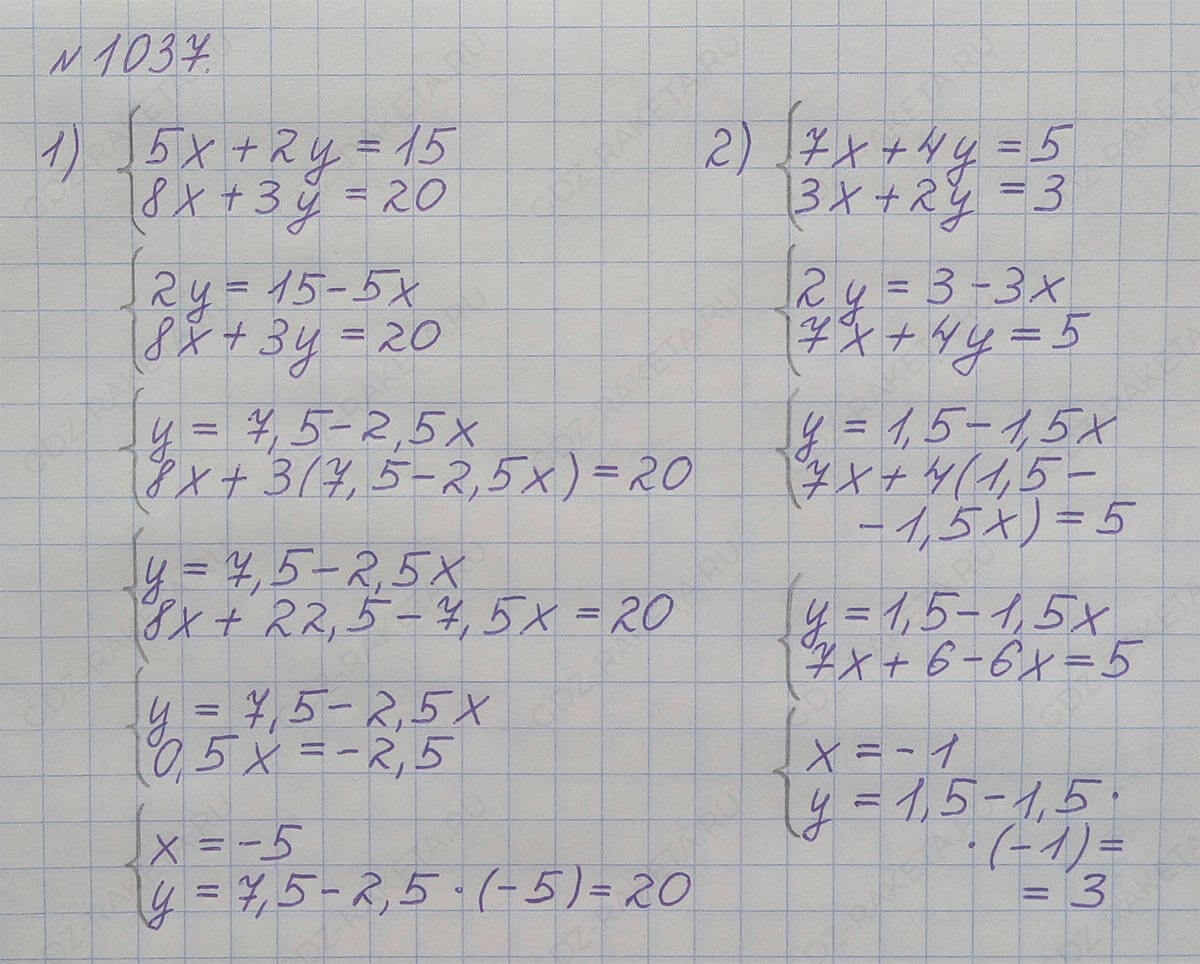 №1037.
1) 5x + 2y = 15
8x + 3y = 20
2y = 15 - 5x
8x + 3y = 20
y = 7,5 - 2,5x
8x + 3(7,5 - 2,5x) = 20
y = 7,5 - 2,5x
8x + 22,5 - 7,5x = 20
y = 7,5 - 2,5x
0,5x = -2,5
x = -5
y = 7,5 - 2,5 · (-5) = 20
2) 7x + 4y = 5
3x + 2y = 3
2y = 3 - 3x
7x + 4y = 5
y = 1,5 - 1,5x
7x + 4(1,5 -
- 1,5x) = 5
y = 1,5 - 1,5x
7x + 6 - 6x = 5
x = -1
y = 1,5 - 1,5 ·
· (-1) =
= 3
GDZ-RAKETA.RU